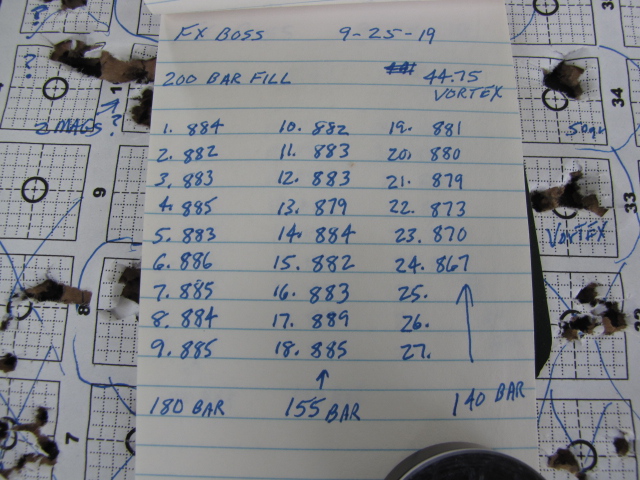 FX BOSS 9-25-19
200 BAR FILL 44.75
VORTEX
1. 884 10. 882 19. 881
2. 882 11. 883 20. 880
3. 883 12. 883 21. 879
4. 885 13. 879 22. 873
5. 883 14. 884 23. 870
6. 886 15. 882 24. 867
7. 885 16. 883 25.
8. 884 17. 889 26.
9. 885 18. 885 27.
180 BAR 155 BAR 140 BAR
?
2 MAGS ?
9
8
7
34
50gr
33
VORTEX